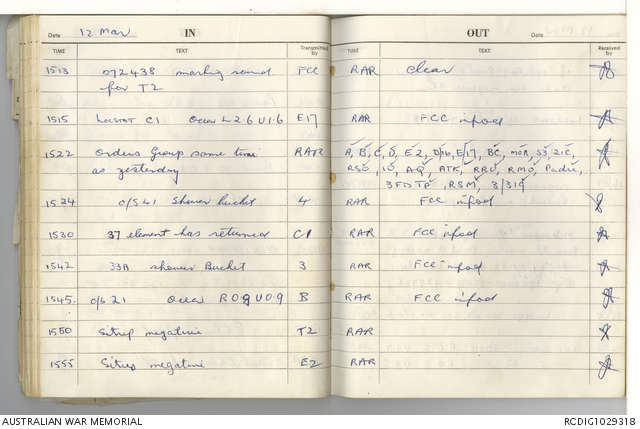 Date 12 Mar IN
TIME TEXT Transmitted by
1513 072438 marking round FCC
for T2
1515 Locstat C1 Ocean L 2.6 U 1.6 E17
1522 Orders Group same time RAR
as yesterday
1524 0/S 41 Shower bucket 4
1530 37 element has returned C1
1542 33A shower Bucket 3
1545. 0/S 21 Ocean R 0.9 U 0.9 B
1550 Sitrep negative T2
1555 Sitrep negative E2
OUT Date
TIME TEXT Received by
RAR Clear
RAR FCC infod
A, B, C, D, E2, E17, BC, S3, 2IC,
RSS, IO, A-Q, ATK, RRU, RMO, Padre,
RSM, 3/319
RAR FCC infod
RAR FCC infod
RAR FCC infod
RAR FCC infod
RAR
RAR
AUSTRALIAN WAR MEMORIAL RCDIG1029318